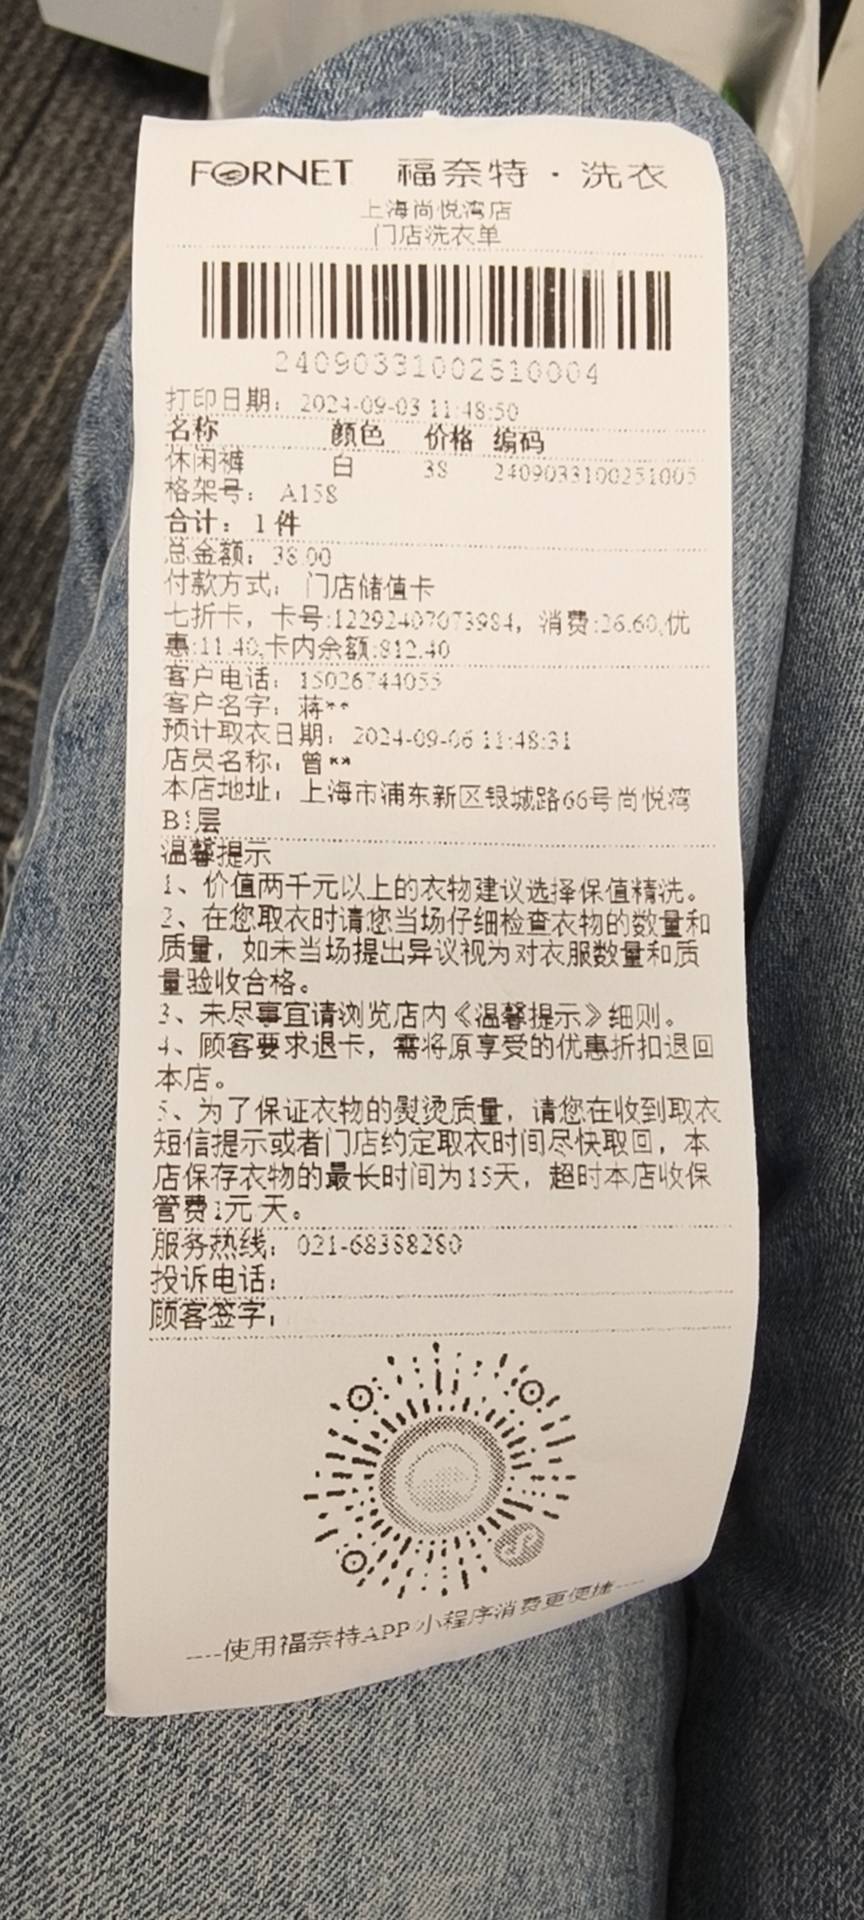 FORNET 福奈特·洗衣
上海尚悦湾店
门店洗衣单
24090331002510004
打印日期：2024-09-03 11:48:50
名称 颜色 价格 编码
休闲裤 白 38 2409033100251005
格架号：A158
合计：1件
总金额：38.00
付款方式：门店储值卡
七折卡，卡号:12292407073984，消费:26.60,优
惠:11.40,卡内余额:812.40
客户电话：15026744055
客户名字：蒋**
预计取衣日期：2024-09-06 11:48:31
店员名称：曾**
本店地址：上海市浦东新区银城路66号尚悦湾
B1层
温馨提示
1、价值两千元以上的衣物建议选择保值精洗。
2、在您取衣时请您当场仔细检查衣物的数量和
质量，如未当场提出异议视为对衣服数量和质
量验收合格。
3、未尽事宜请浏览店内《温馨提示》细则。
4、顾客要求退卡，需将原享受的优惠折扣退回
本店。
5、为了保证衣物的熨烫质量，请您在收到取衣
短信提示或者门店约定取衣时间尽快取回，本
店保存衣物的最长时间为15天，超时本店收保
管费1元/天。
服务热线：021-68388280
投诉电话：
顾客签字：
----使用福奈特APP/小程序消费更便捷----